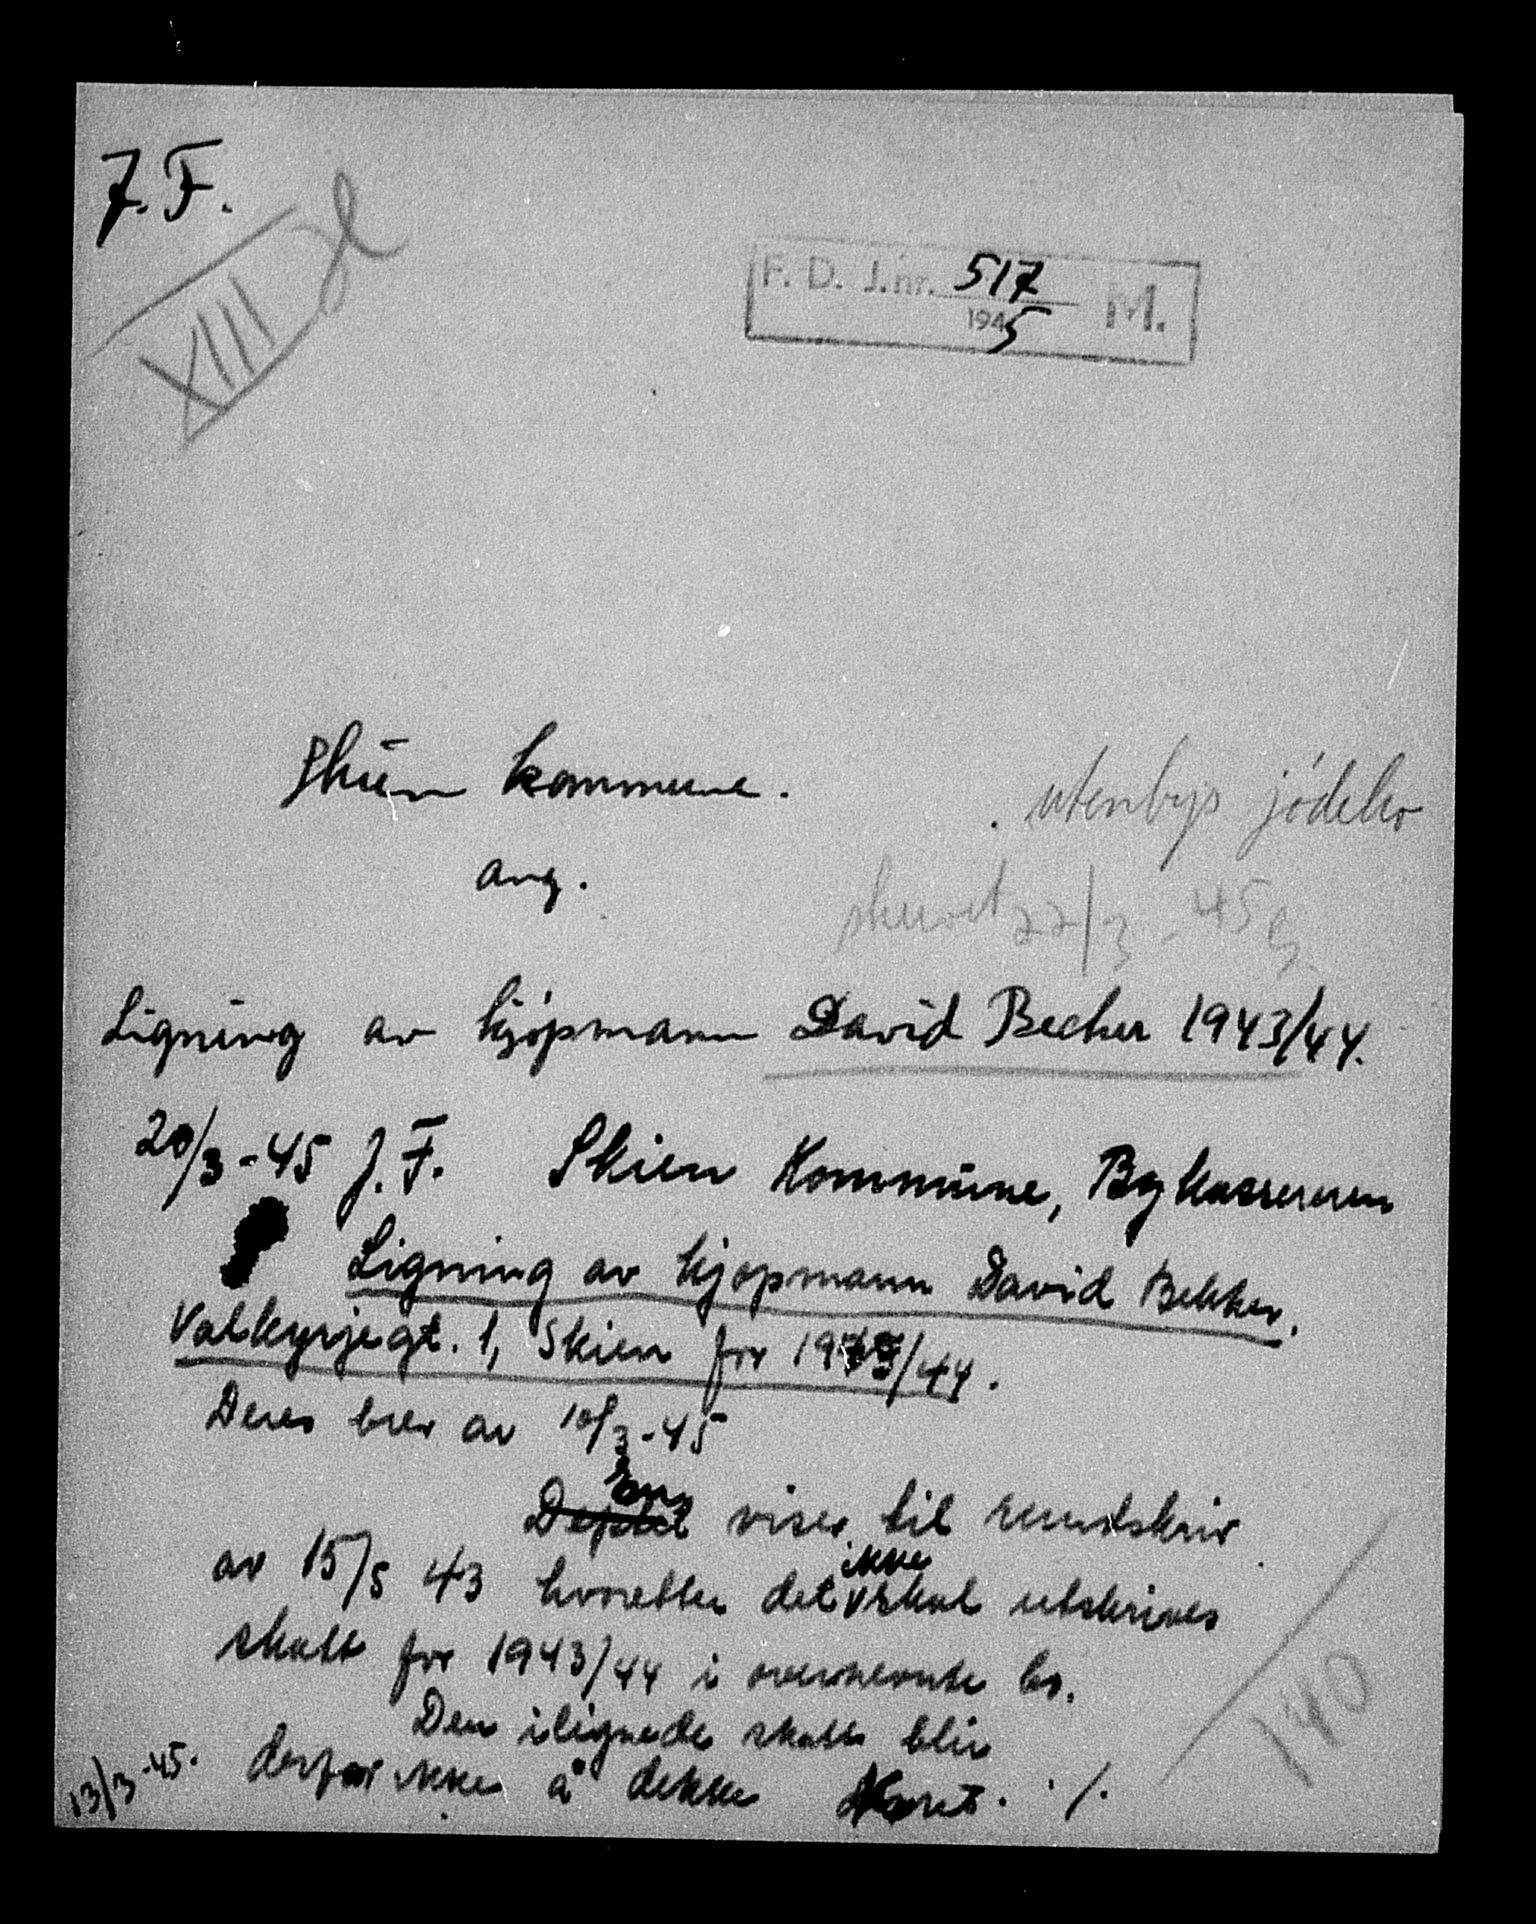 J. F.
XIII
F. D. J.nr. 517 M.
1945
Skien kommune.
utenbys jødebo
ang.
skrevet 22/3-45
Ligning av kjøpmann David Becker 1943/44.
20/3-45 J. F. Skien Kommune, Bykassereren
Ligning av kjøpmann David Bekker,
Valkyrjegt. 1, Skien for 1943/44.
Deres brev av 10/3-45
En
viser til rundskriv
av 15/5 43 hvoretter det ikke skal utskrives
skatt for 1943/44 i overnevnte bo.
Den ilignede skatt blir
derfor ikke å dekke ./.
13/3-45.
140